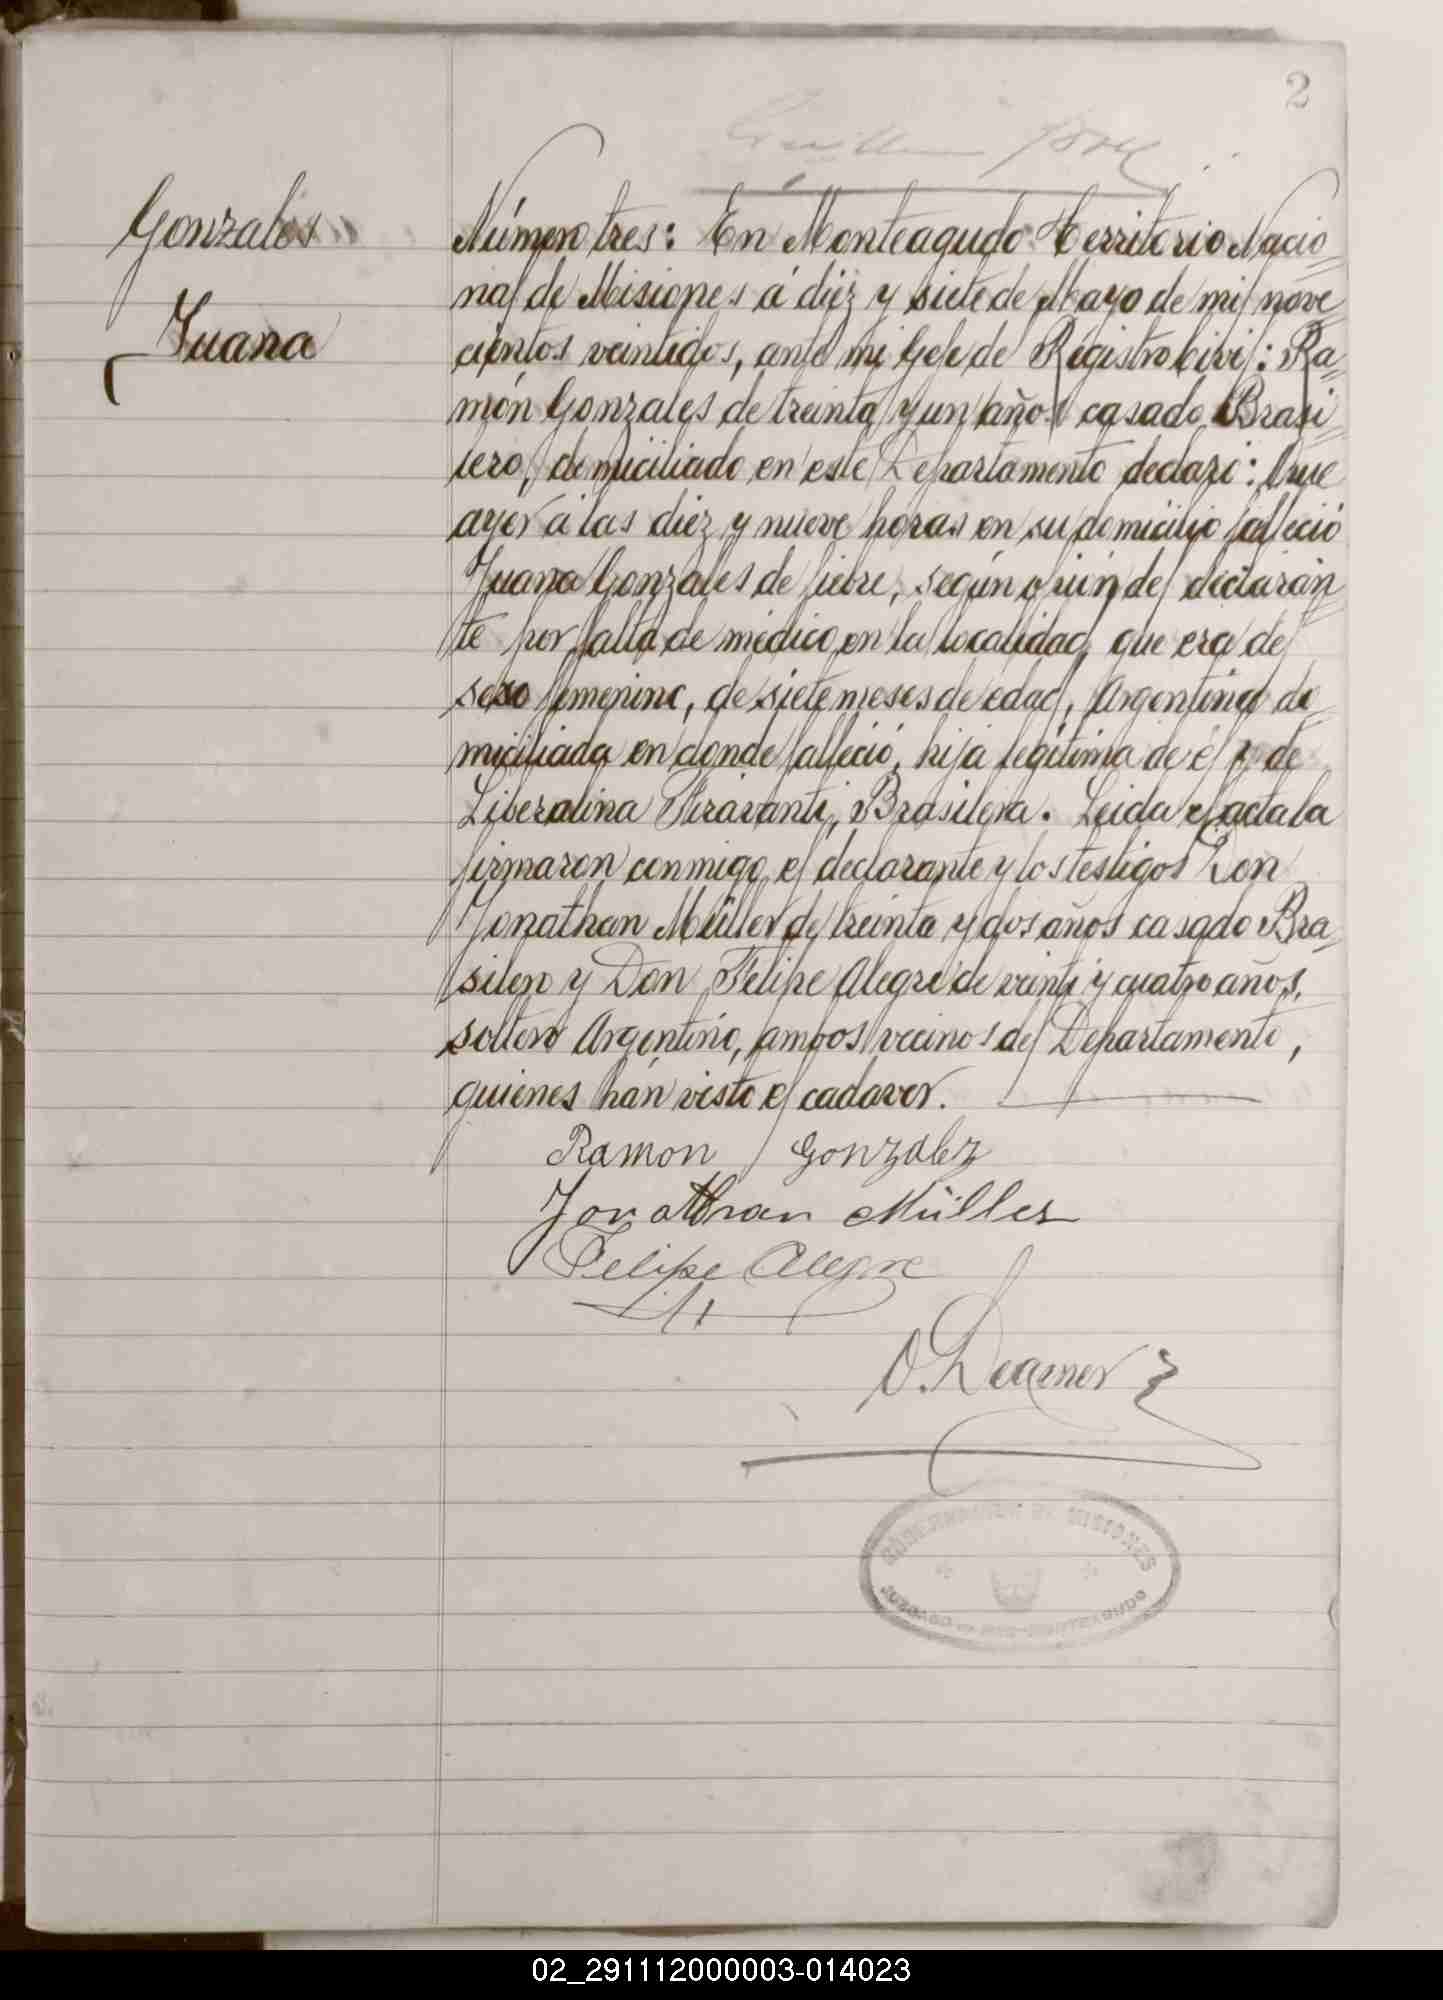 2
Gonzales
Juana
Número tres: En Monteagudo Territorio Nacio=
nal de Misiones á diez y siete de Mayo de mil nove=
cientos veintidos, ante mi Gefe de Registro Civil: Ra=
món Gonzales de treinta y un años casado Brasi=
lero, domiciliado en este Departamento declaró: Que
ayer á las diez y nueve horas en su domicilio falleció
Juana Gonzales de fiebre, según opinión del declaran=
te por falta de médico en la localidad, que era de
sexo femenino, de siete meses de edad, Argentina do=
miciliada en donde falleció, hija legítima de él y de
Liberalina Brasilera. Leida el acta la
firmaron conmigo el declarante y los testigos Don
Jonathan Müller de treinta y dos años casado Bra=
silero y Don Felipe Alegre de veinti y cuatro años,
soltero Argentino, ambos vecinos del Departamento,
quienes hán visto el cadaver.
Ramon Gonzalez
Jonathan Müller
Felipe Alegre
GOBERNACION DE MISIONES
JUZGADO DE PAZ-MONTEAGUDO
02_291112000003-014023